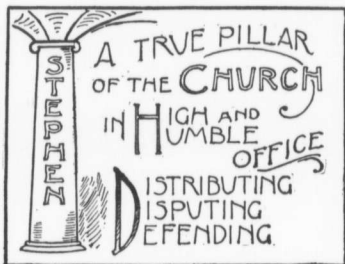 STEPHEN
A TRUE PILLAR
OF THE CHURCH
IN HIGH AND
HUMBLE
OFFICE
DISTRIBUTING
DISPUTING
DEFENDING